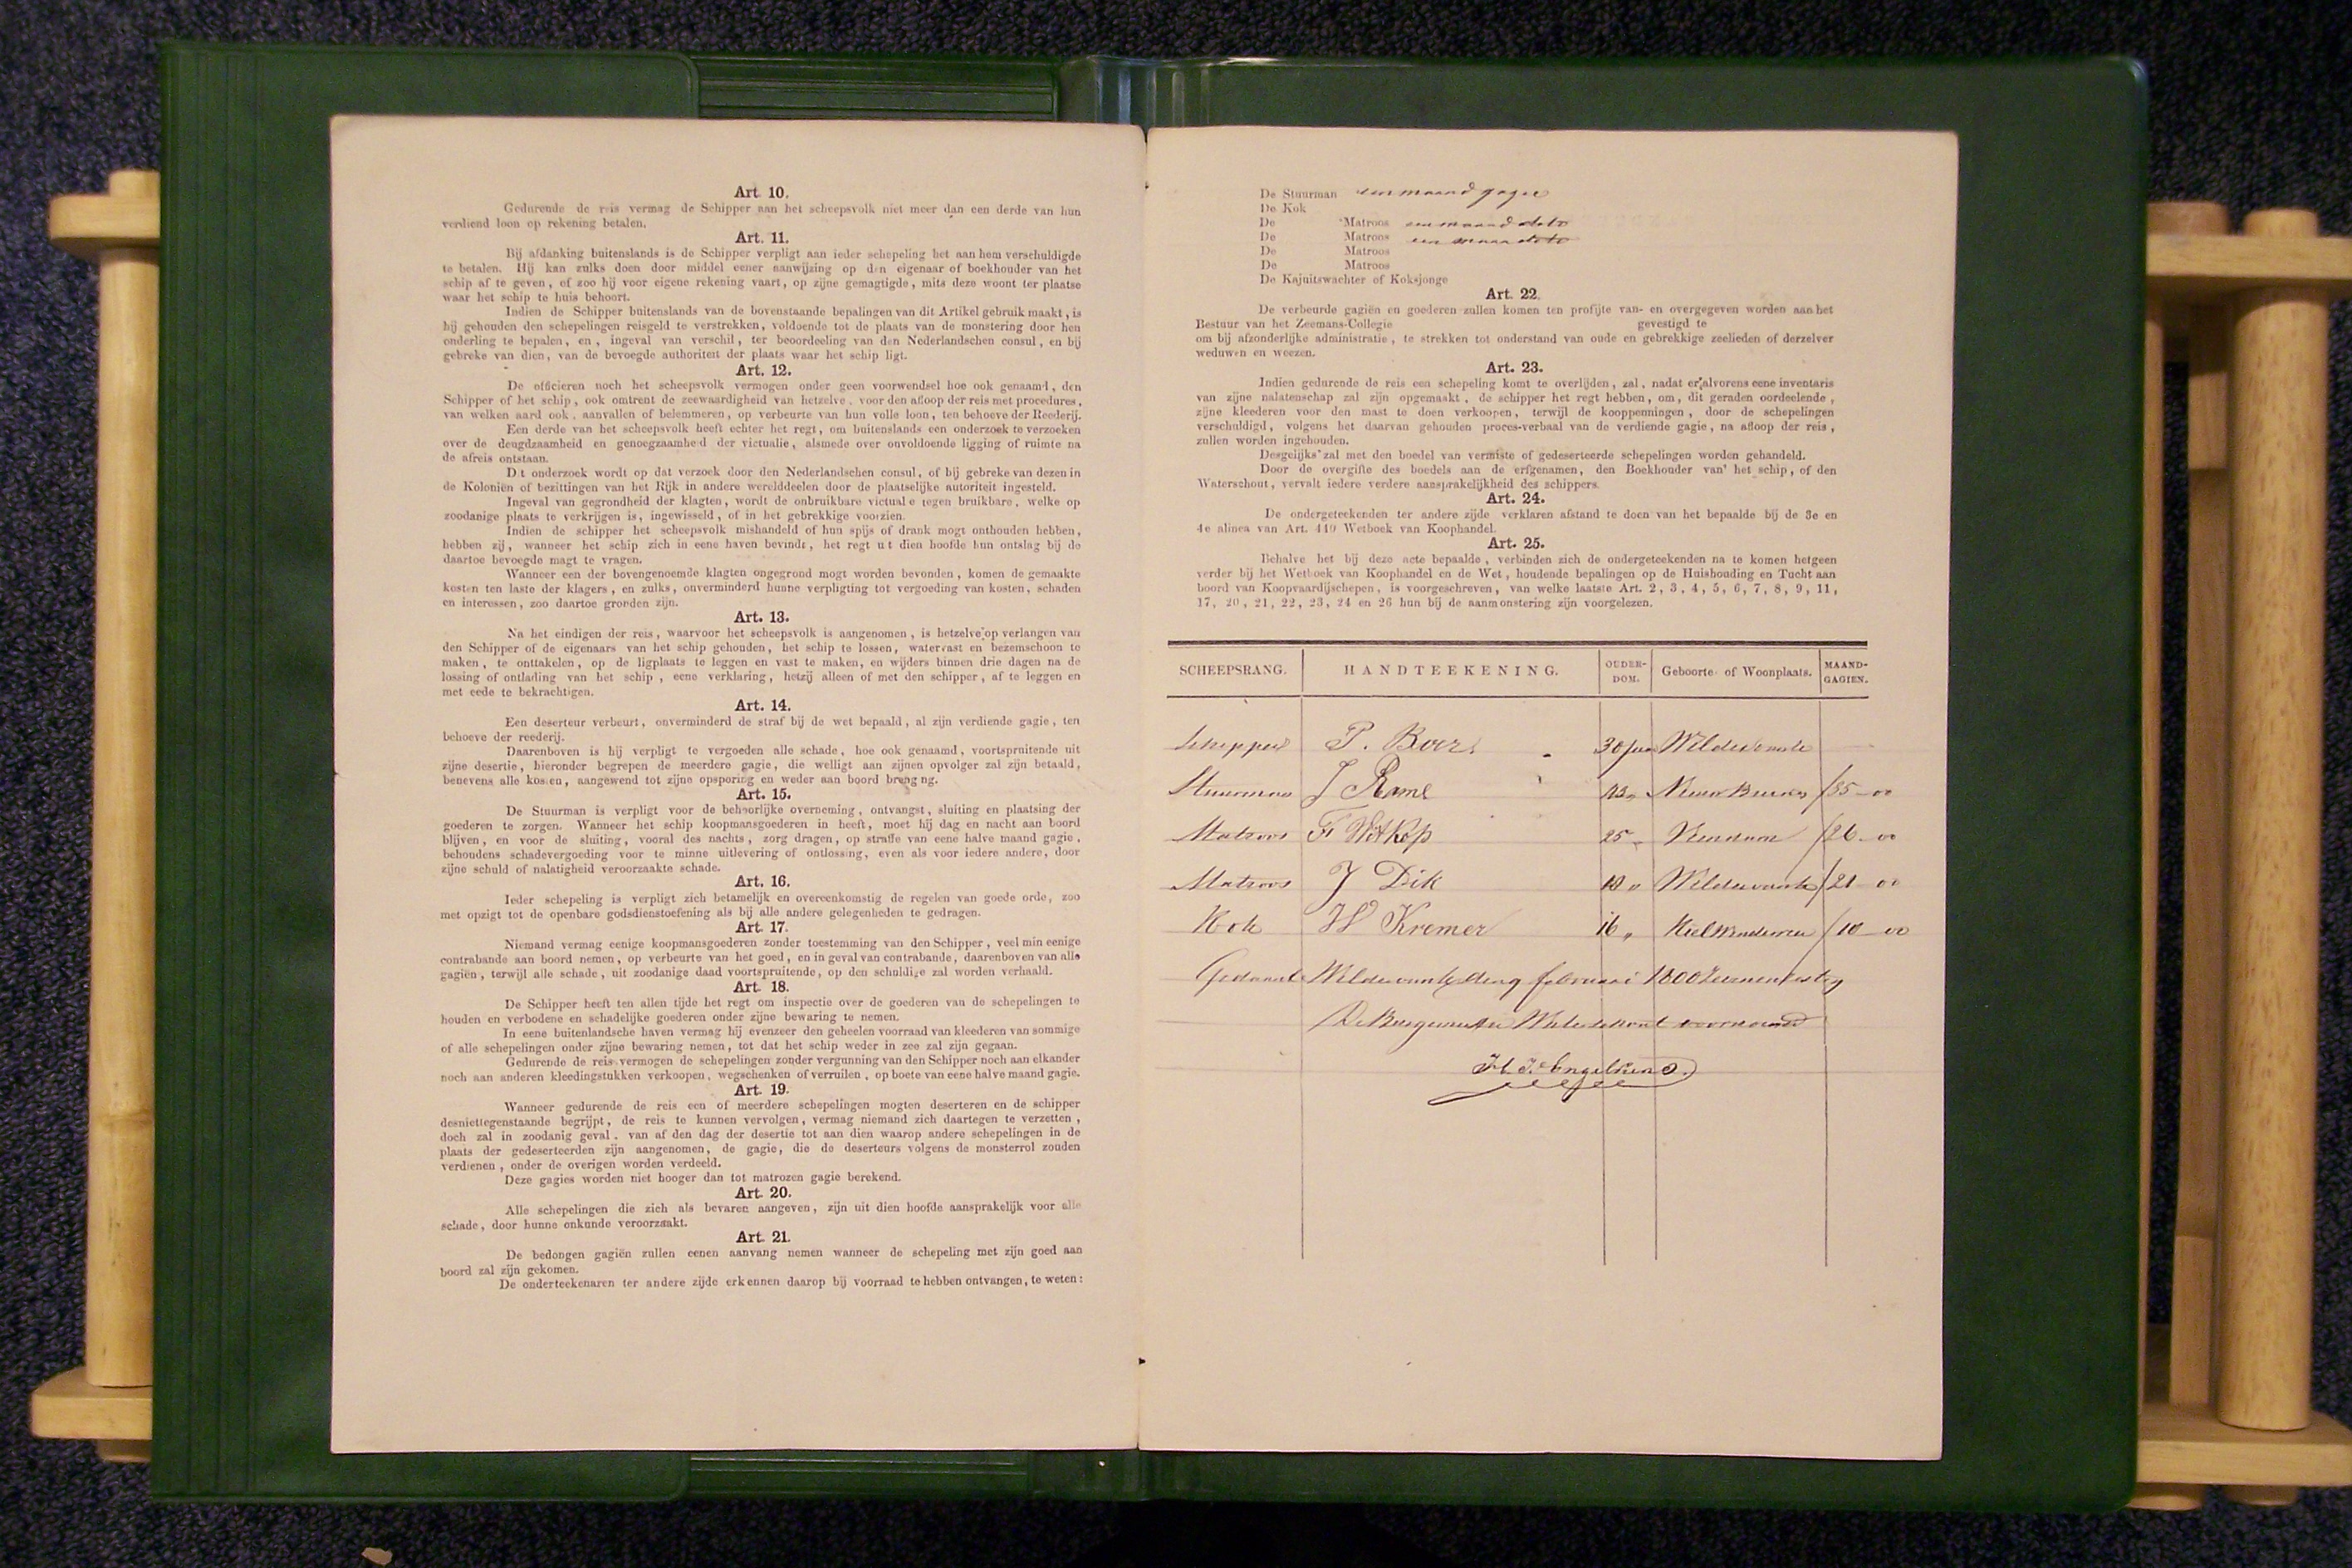 Art. 10.
Gedurende de reis vermag de Schipper aan het scheepsvolk niet meer dan een derde van hun
verdiend loon op rekening betalen.
Art. 11.
Bij afdanking buitenslands is de Schipper verpligt aan ieder schepeling het aan hem verschuldigde
te betalen. Hij kan zulks doen door middel eener aanwijzing op den eigenaar of boekhouder van het
schip af te geven, of zoo hij voor eigene rekening vaart, op zijne gemagtigde, mits deze woont ter plaatse
waar het schip te huis behoort.
Indien de Schipper buitenslands van de bovenstaande bepalingen van dit Artikel gebruik maakt, is
hij gehouden den schepelingen reisgeld te verstrekken, voldoende tot de plaats van de monstering door hen
onderling te bepalen, en, ingeval van verschil, ter beoordeeling van den Nederlandschen consul, en bij
gebreke van dien, van de bevoegde authoriteit der plaats waar het schip ligt.
Art. 12.
De officieren noch het scheepsvolk vermogen onder geen voorwendsel hoe ook genaamd, den
Schipper of het schip, ook omtrent de zeewaardigheid van hetzelve, voor den afloop der reis met procedures,
van welken aard ook, aanvallen of belemmeren, op verbeurte van hun volle loon, ten behoeve der Reederij.
Een derde van het scheepsvolk heeft echter het regt, om buitenslands een onderzoek te verzoeken
over de deugdzaamheid en genoegzaamheid der victualie, alsmede over onvoldoende ligging of ruimte na
de afreis ontstaan.
Dit onderzoek wordt op dat verzoek door den Nederlandschen consul, of bij gebreke van dezen in
de Koloniën of bezittingen van het Rijk in andere werelddeelen door de plaatselijke autoriteit ingesteld.
Ingeval van gegrondheid der klagten, wordt de onbruikbare victualie tegen bruikbare, welke op
zoodanige plaats te verkrijgen is, ingewisseld, of in het gebrekkige voorzien.
Indien de schipper het scheepsvolk mishandeld of hun spijs of drank mogt onthouden hebben,
hebben zij, wanneer het schip zich in eene haven bevindt, het regt uit dien hoofde hun ontslag bij de
daartoe bevoegde magt te vragen.
Wanneer een der bovengenoemde klagten ongegrond mogt worden bevonden, komen de gemaakte
kosten ten laste der klagers, en zulks, onverminderd hunne verpligting tot vergoeding van kosten, schaden
en interessen, zoo daartoe gronden zijn.
Art. 13.
Na het eindigen der reis, waarvoor het scheepsvolk is aangenomen, is hetzelve op verlangen van
den Schipper of de eigenaars van het schip gehouden, het schip te lossen, watervast en bezemschoon te
maken, te onttakelen, op de ligplaats te leggen en vast te maken, en wijders binnen drie dagen na de
lossing of ontlading van het schip, eene verklaring, hetzij alleen of met den schipper, af te leggen en
met eede te bekrachtigen.
Art. 14.
Een deserteur verbeurt, onverminderd de straf bij de wet bepaald, al zijn verdiende gagie, ten
behoeve der reederij.
Daarenboven is hij verpligt te vergoeden alle schade, hoe ook genaamd, voortspruitende uit
zijne desertie, hieronder begrepen de meerdere gagie, die welligt aan zijnen opvolger zal zijn betaald,
benevens alle kosten, aangewend tot zijne opsporing en weder aan boord brenging.
Art. 15.
De Stuurman is verpligt voor de behoorlijke overneming, ontvangst, sluiting en plaatsing der
goederen te zorgen. Wanneer het schip koopmansgoederen in heeft, moet hij dag en nacht aan boord
blijven, en voor de sluiting, vooral des nachts, zorg dragen, op straffe van eene halve maand gagie,
behoudens schadevergoeding voor te minne uitlevering of ontlossing, even als voor iedere andere, door
zijne schuld of nalatigheid veroorzaakte schade.
Art. 16.
Ieder schepeling is verpligt zich betamelijk en overeenkomstig de regelen van goede orde, zoo
met opzigt tot de openbare godsdienstoefening als bij alle andere gelegenheden te gedragen.
Art. 17.
Niemand vermag eenige koopmansgoederen zonder toestemming van den Schipper, veel min eenige
contrabande aan boord nemen, op verbeurte van het goed, en in geval van contrabande, daarenboven van alle
gagiën, terwijl alle schade, uit zoodanige daad voortspruitende, op den schuldige zal worden verhaald.
Art. 18.
De Schipper heeft ten allen tijde het regt om inspectie over de goederen van de schepelingen te
houden en verbodene en schadelijke goederen onder zijne bewaring te nemen.
In eene buitenlandsche haven vermag hij evenzeer den geheelen voorraad van kleederen van sommige
of alle schepelingen onder zijne bewaring nemen, tot dat het schip weder in zee zal zijn gegaan.
Gedurende de reis vermogen de schepelingen zonder vergunning van den Schipper noch aan elkander
noch aan anderen kleedingstukken verkoopen, wegschenken of verruilen, op boete van eene halve maand gagie.
Art. 19.
Wanneer gedurende de reis een of meerdere schepelingen mogten deserteren en de schipper
desniettegenstaande begrijpt, de reis te kunnen vervolgen, vermag niemand zich daartegen te verzetten,
doch zal in zoodanig geval, van af den dag der desertie tot aan dien waarop andere schepelingen in de
plaats der gedeserteerden zijn aangenomen, de gagie, die de deserteurs volgens de monsterrol zouden
verdienen, onder de overigen worden verdeeld.
Deze gagies worden niet hooger dan tot matrozen gagie berekend.
Art. 20.
Alle schepelingen die zich als bevaren aangeven, zijn uit dien hoofde aansprakelijk voor alle
schade, door hunne onkunde veroorzaakt.
Art. 21.
De bedongen gagiën zullen eenen aanvang nemen wanneer de schepeling met zijn goed aan
boord zal zijn gekomen.
De onderteekenaren ter andere zijde erkennen daarop bij voorraad te hebben ontvangen, te weten:
De Stuurman een maand gagie
De Kok
De Matroos een maand dito
De Matroos een maand dito
De Matroos
De Matroos
De Kajuitswachter of Koksjonge
Art. 22.
De verbeurde gagiën en goederen zullen komen ten profijte van- en overgegeven worden aan het
Bestuur van het Zeemans-Collegie gevestigd te
om bij afzonderlijke administratie, te strekken tot onderstand van oude en gebrekkige zeelieden of derzelver
weduwen en weezen.
Art. 23.
Indien gedurende de reis een schepeling komt te overlijden, zal, nadat er alvorens eene inventaris
van zijne nalatenschap zal zijn opgemaakt, de schipper het regt hebben, om, dit geraden oordeelende,
zijne kleederen voor den mast te doen verkoopen, terwijl de kooppenningen, door de schepelingen
verschuldigd, volgens het daarvan gehouden proces-verbaal van de verdiende gagie, na afloop der reis,
zullen worden ingehouden.
Desgelijks zal met den boedel van vermiste of gedeserteerde schepelingen worden gehandeld.
Door de overgifte des boedels aan de erfgenamen, den Boekhouder van het schip, of den
Waterschout, vervalt iedere verdere aansprakelijkheid des schippers.
Art. 24.
De ondergeteekenden ter andere zijde verklaren afstand te doen van het bepaalde bij de 3e en
4e alinea van Art. 440 Wetboek van Koophandel.
Art. 25.
Behalve het bij deze acte bepaalde, verbinden zich de ondergeteekenden na te komen hetgeen
verder bij het Wetboek van Koophandel en de Wet, houdende bepalingen op de Huishouding en Tucht aan
boord van Koopvaardijschepen, is voorgeschreven, van welke laatste Art. 2, 3, 4, 5, 6, 7, 8, 9, 11,
17, 20, 21, 22, 23, 24 en 26 hun bij de aanmonstering zijn voorgelezen.
SCHEEPSRANG. HANDTEEKENING. OUDER-DOM. Geboorte- of Woonplaats. MAAND-GAGIEN.
Schipper P. Boer 30 jaar Wildervank
Stuurman J Rame Nieuw Beerta f 35-00
Matroos F Witkop 25 " Veendam f 26-00
Matroos J Dik 18 " Wildervank f 21-00
Kok W Kremer 16 " Kielwindeweer f 10-00
Gedaan te Wildervank den 9 februari 1800 zeven en zestig
De Burgemeester Waterschout voornoemd